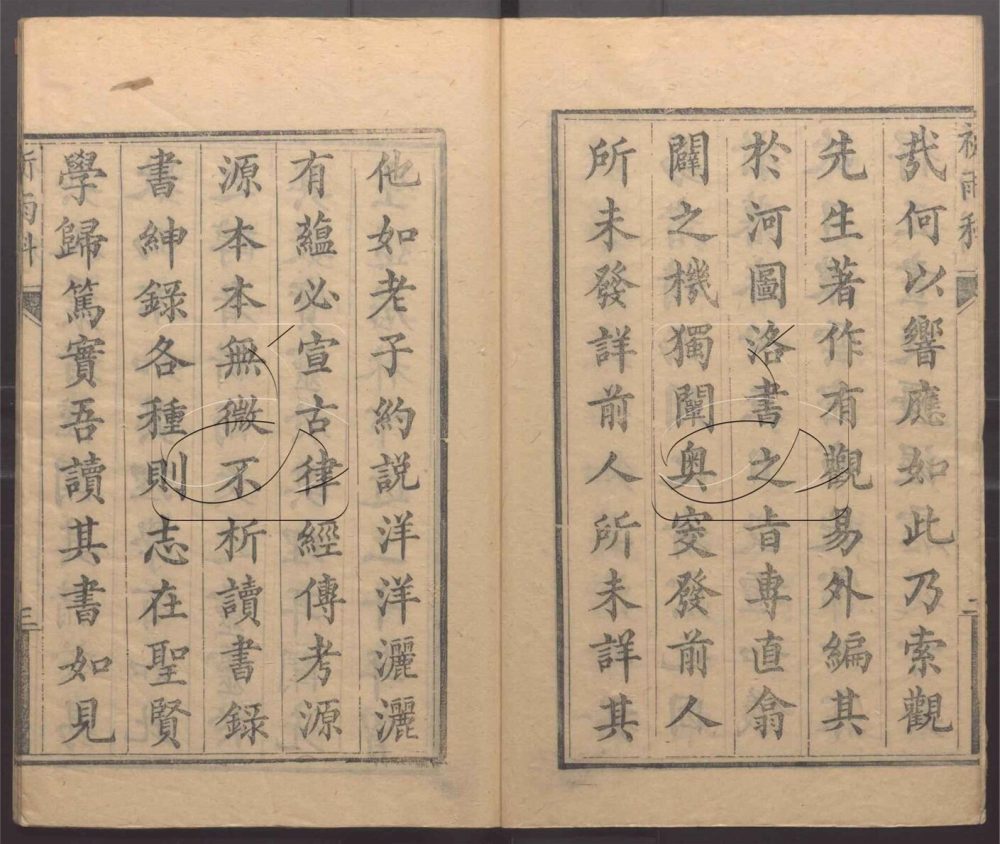 祈雨科
二
哉何以響應如此乃索觀
先生著作有觀易外編其
於河圖洛書之旨專直翕
闢之機獨闡奥窔發前人
所未發詳前人所未詳其
他如老子約說洋洋灑灑
有蘊必宣古律經傳考源
源本本無微不析讀書錄
書紳錄各種則志在聖賢
學歸篤實吾讀其書如見
祈雨科
三